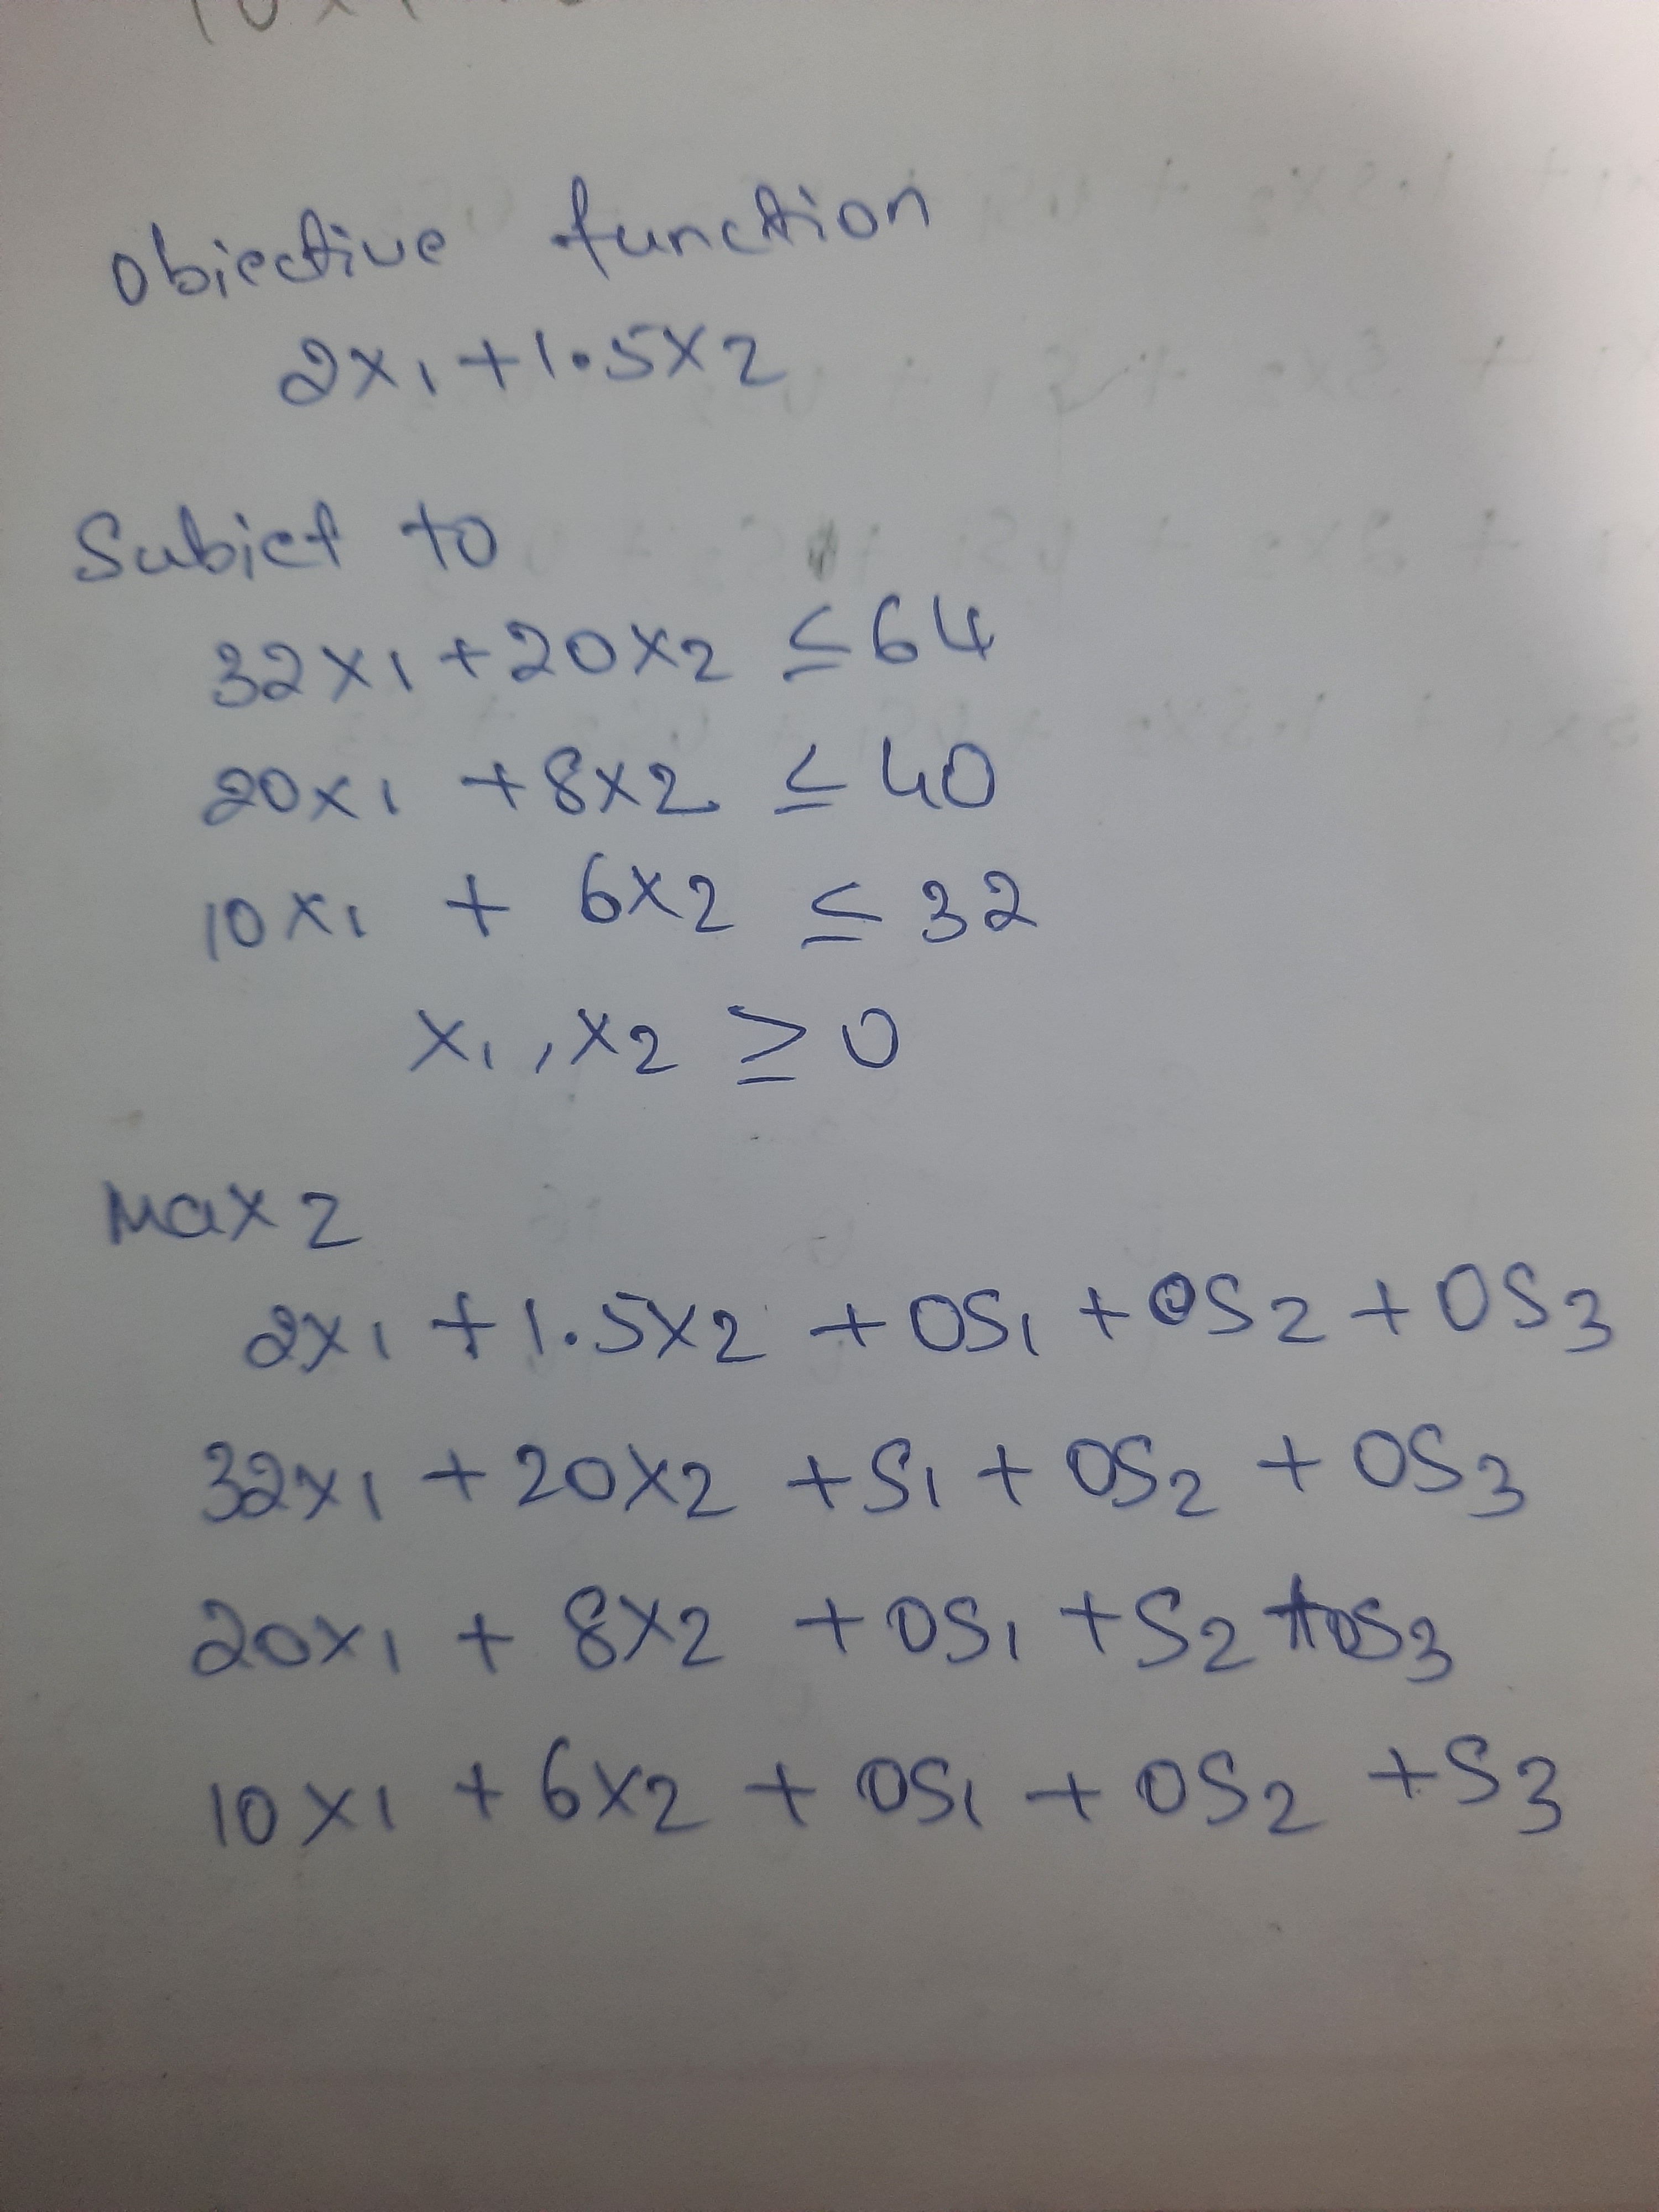 Obiective function
2x1 + 1.5x2
Subiet to
32x1 + 20x2 ≤ 64
20x1 + 8x2 ≤ 40
10x1 + 6x2 ≤ 32
x1, x2 ≥ 0
Max z
2x1 + 1.5x2 + 0S1 + 0S2 + 0S3
32x1 + 20x2 + S1 + 0S2 + 0S3
20x1 + 8x2 + 0S1 + S2 + 0S3
10x1 + 6x2 + 0S1 + 0S2 + S3